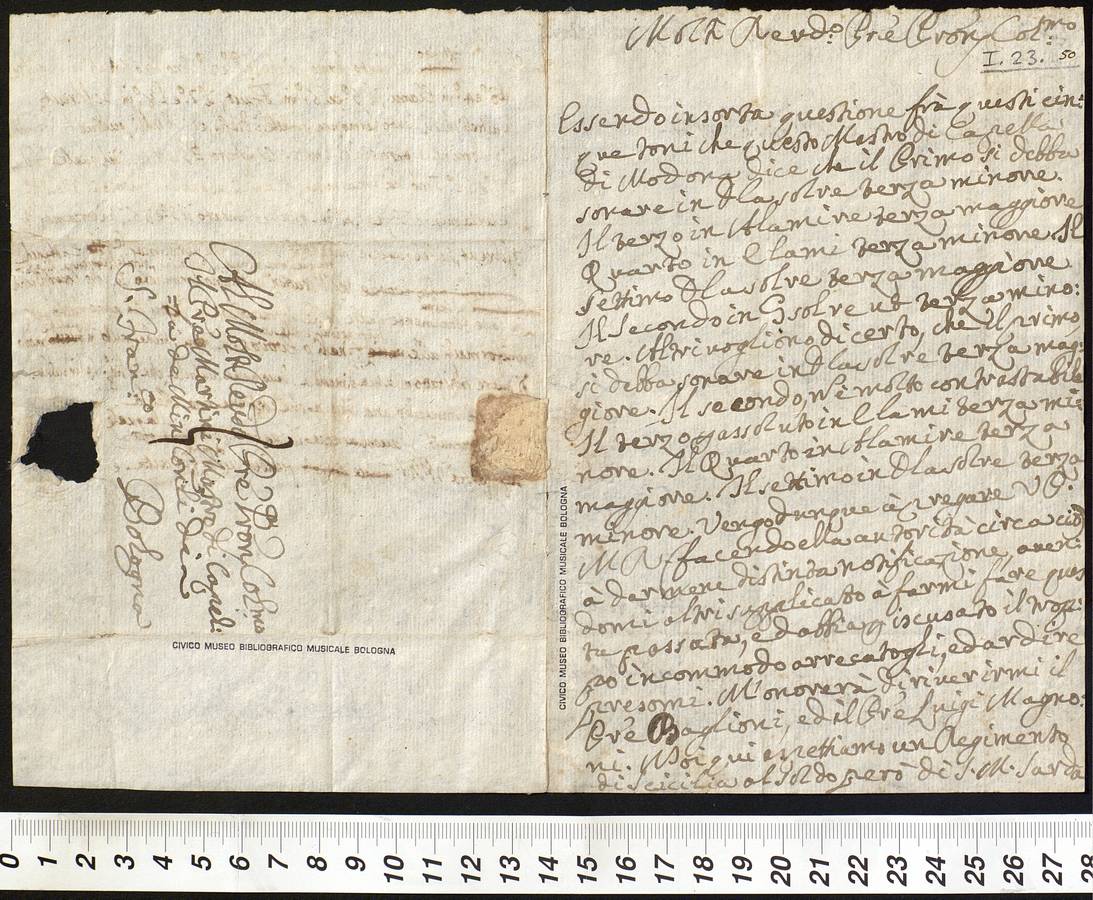 Molto Revdo. Pre Pron Colmo
I. 23. 50
Essendo insorta questione frà questi cin:
que toni che questo Mastro di Capella
di Modona dice che il Primo si debba
sonare in Dlasolre terza minore.
Il terzo in Alamire terza maggiore
Quarto in Elami terza minore Il
settimo Dlasolre terza maggiore
Il secondo in Gsolreut terza mino:
re. Altri vogliono di certo, che il primo
si debba sonare in Dlasolre terza mag:
giore. Il secondo, vi è molto contrastabile
Il terzo assoluto in Elami terza mi:
nore. Il Quarto in Alamire terza
maggiore. Il settimo in Dlasolre terza
minore. Vengo dunque à pregare V. P.
M. R. facendo ella autorità circa ciò
à darmene distinta notificazione, aven:
domi altri supplicato à farmi fare ques
ta passata, ed abbia p iscusato il trop:
po incommodo arrecatogli, ed ardire
presomi. M'onorerà di riverirmi il
Pre Baglioni, ed il Pre Luigi Magno:
ni. Noi qui aspettiamo un Regimento
di Sicilia al soldo però di S. M. Sarda
Al Molto Revdo Pre Pron Colmo
Il Pre Martini Mastro di Capel:
la de Min: Conli di
S. Franco
Bologna
CIVICO MUSEO BIBLIOGRAFICO MUSICALE BOLOGNA
CIVICO MUSEO BIBLIOGRAFICO MUSICALE BOLOGNA
0 1 2 3 4 5 6 7 8 9 10 11 12 13 14 15 16 17 18 19 20 21 22 23 24 25 26 27 28